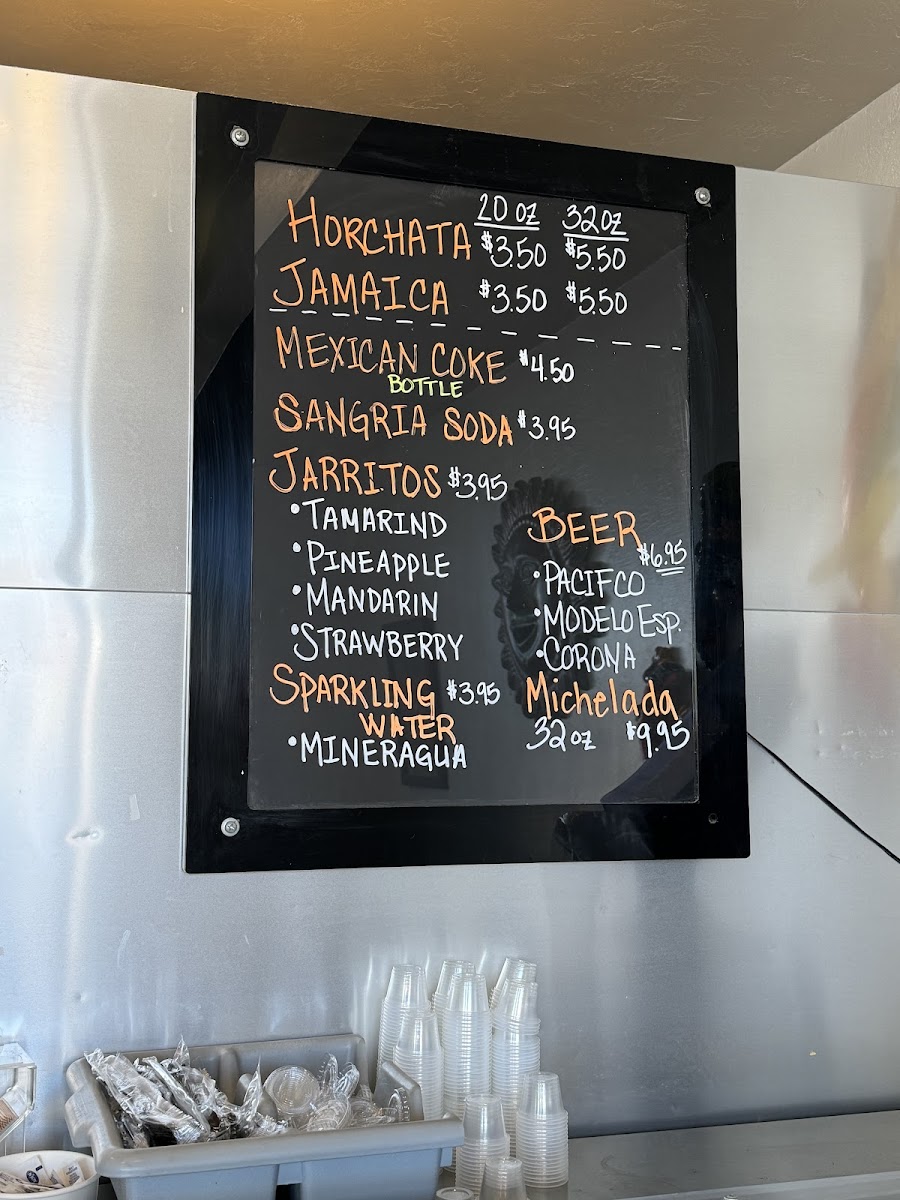 20 oz 32oz
HORCHATA $3.50 $5.50
JAMAICA $3.50 $5.50
MEXICAN COKE $4.50
BOTTLE
SANGRIA SODA $3.95
JARRITOS $3.95
• TAMARIND
• PINEAPPLE
• MANDARIN
• STRAWBERRY
SPARKLING $3.95
WATER
• MINERAGUA
BEER
$6.95
• PACIFCO
• MODELO ESP.
• CORONA
Michelada
32 oz $9.95